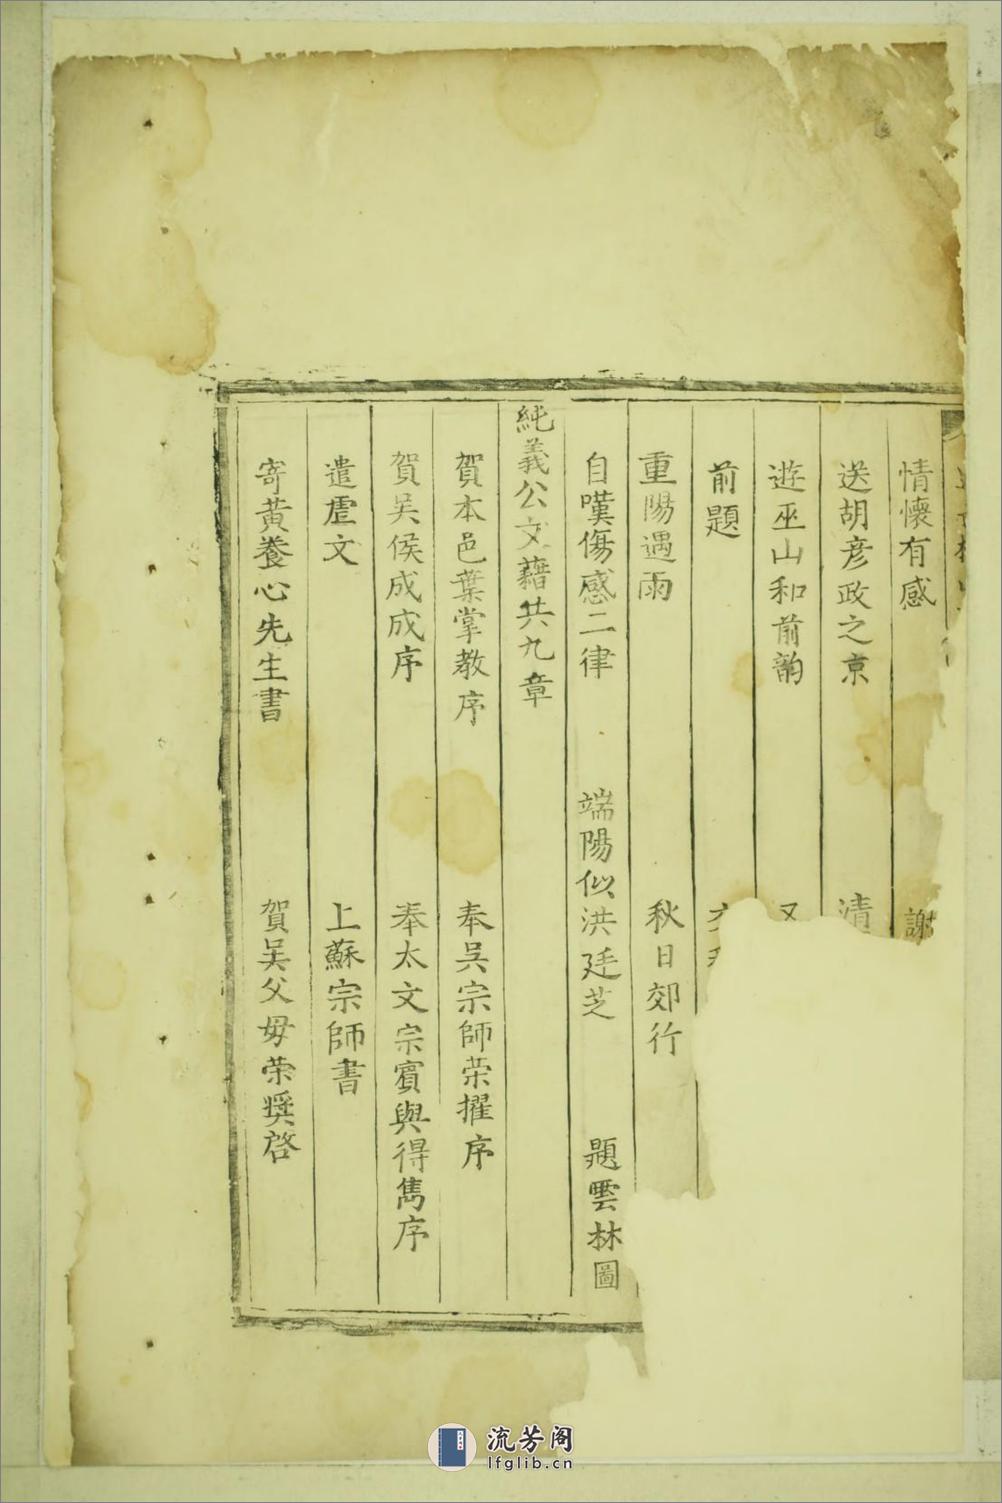 情懷有感　謝
送胡彥政之京　清
遊巫山和前韵　又
前題
重陽遇雨　秋日郊行
自嘆傷感二律　端陽似洪廷芝　題雲林圖
純義公文藉共九章
賀本邑葉掌教序　奉吳宗師荣擢序
賀吴侯成成序　奉太文宗賓與得雋序
遣虐文　上蘇宗師書
寄黃養心先生書　賀吴父毋荣獎啓
流芳阁
lfglib.cn